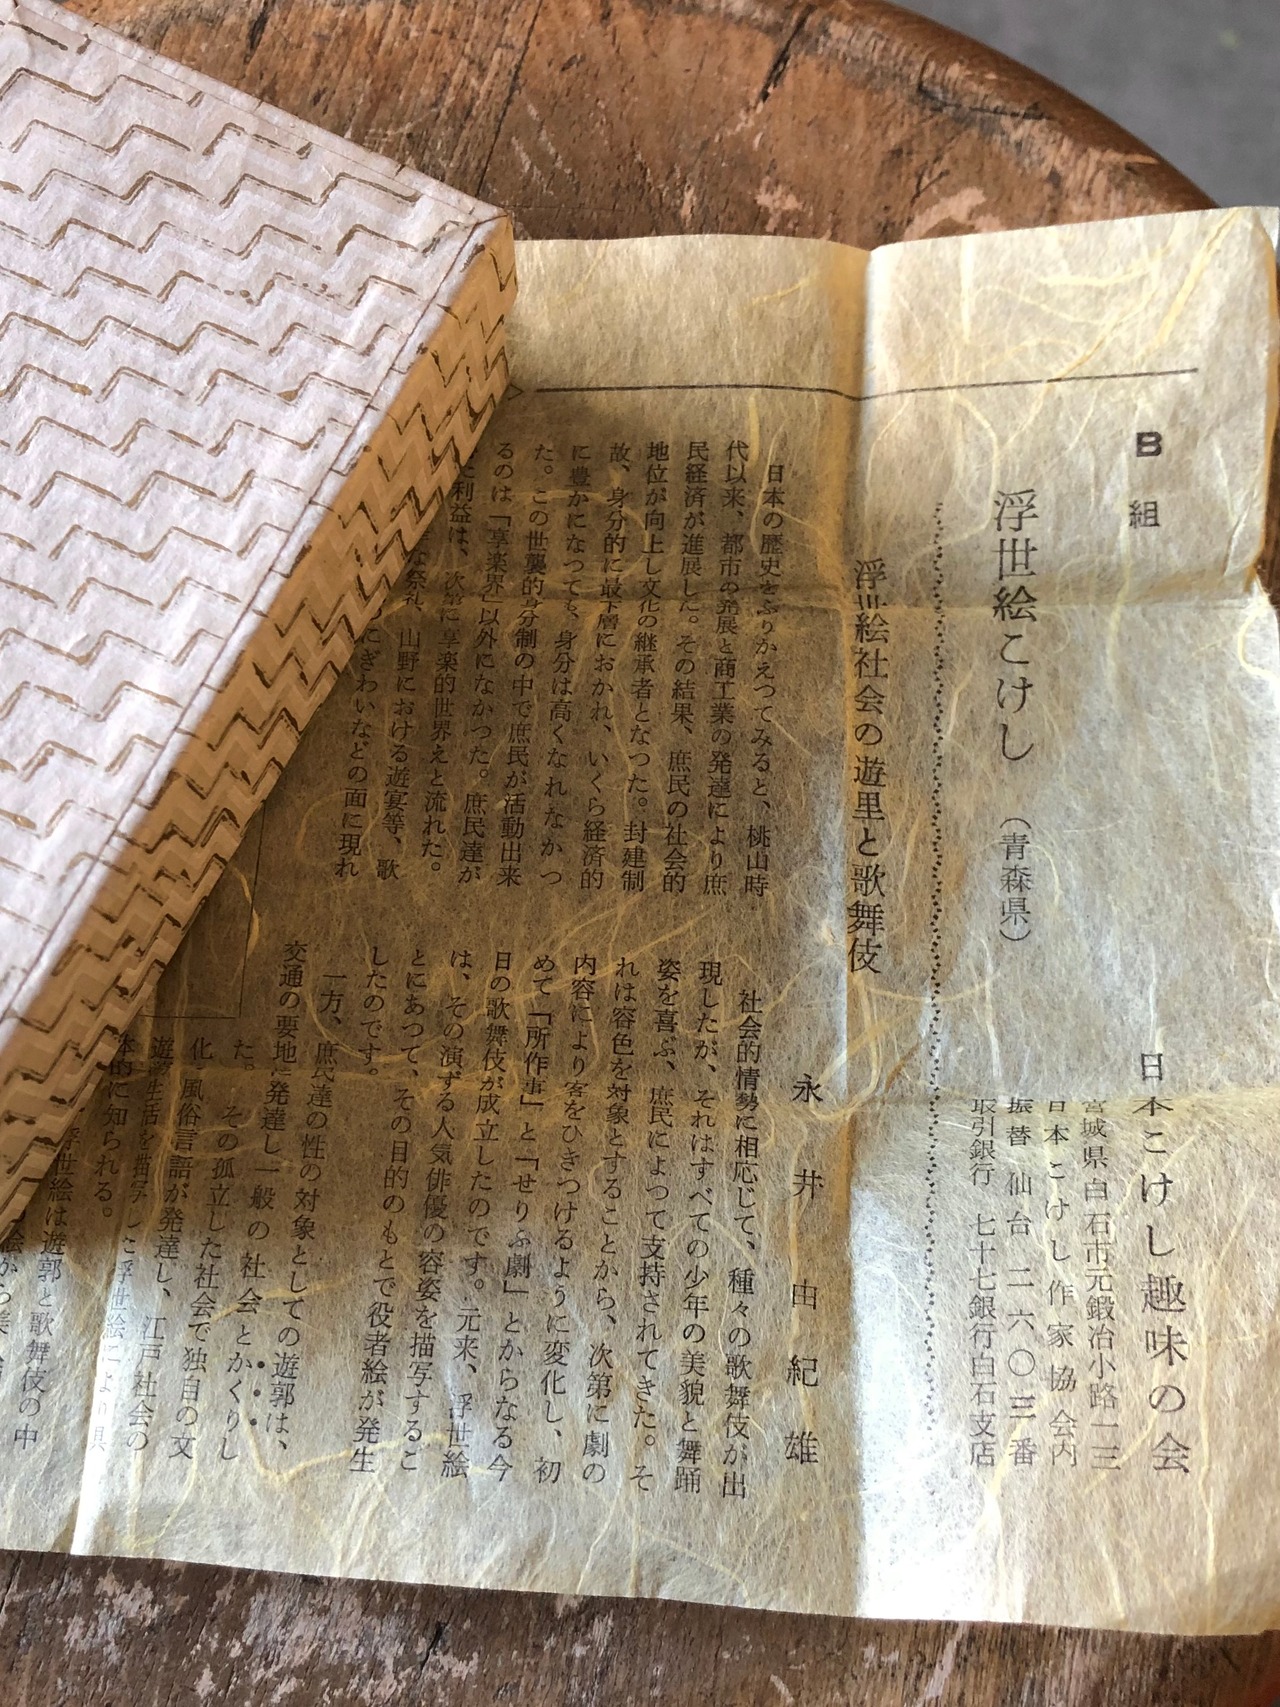 B組
浮世絵こけし（青森県）
日本こけし趣味の会
宮城県白石市元鍛冶小路一三
日本こけし作家協会内
振替 仙台二六〇三番
取引銀行 七十七銀行白石支店
浮世絵社会の遊里と歌舞伎
永井由紀雄
日本の歴史をふりかえつてみると、桃山時
代以来、都市の発展と商工業の発達により庶
民経済が進展した。その結果、庶民の社会的
地位が向上し文化の継承者となつた。封建制
故、身分的に最下層におかれ、いくら経済的
に豊かになつても、身分は高くなれなかつ
た。この世襲的身分制の中で庶民が活動出来
るのは「享楽界」以外になかつた。庶民達が
た利益は、次第に享楽的世界えと流れた。
な祭礼、山野における遊宴等、歌
にぎわいなどの面に現れ
社会的情勢に相応じて、種々の歌舞伎が出
現したが、それはすべての少年の美貌と舞踊
姿を喜ぶ、庶民によつて支持されてきた。そ
れは容色を対象とすることから、次第に劇の
内容により客をひきつけるように変化し、初
めて「所作事」と「せりふ劇」とからなる今
日の歌舞伎が成立したのです。元来、浮世絵
は、その演ずる人気俳優の容姿を描写するこ
とにあつて、その目的のもとで役者絵が発生
したのです。
一方、庶民達の性の対象としての遊郭は、
交通の要地に発達し一般の社会とかくりし
た。その孤立した社会で独自の文
化、風俗言語が発達し、江戸社会の
遊郭生活を描写した浮世絵により具
体的に知られる。
浮世絵は遊郭と歌舞伎の中